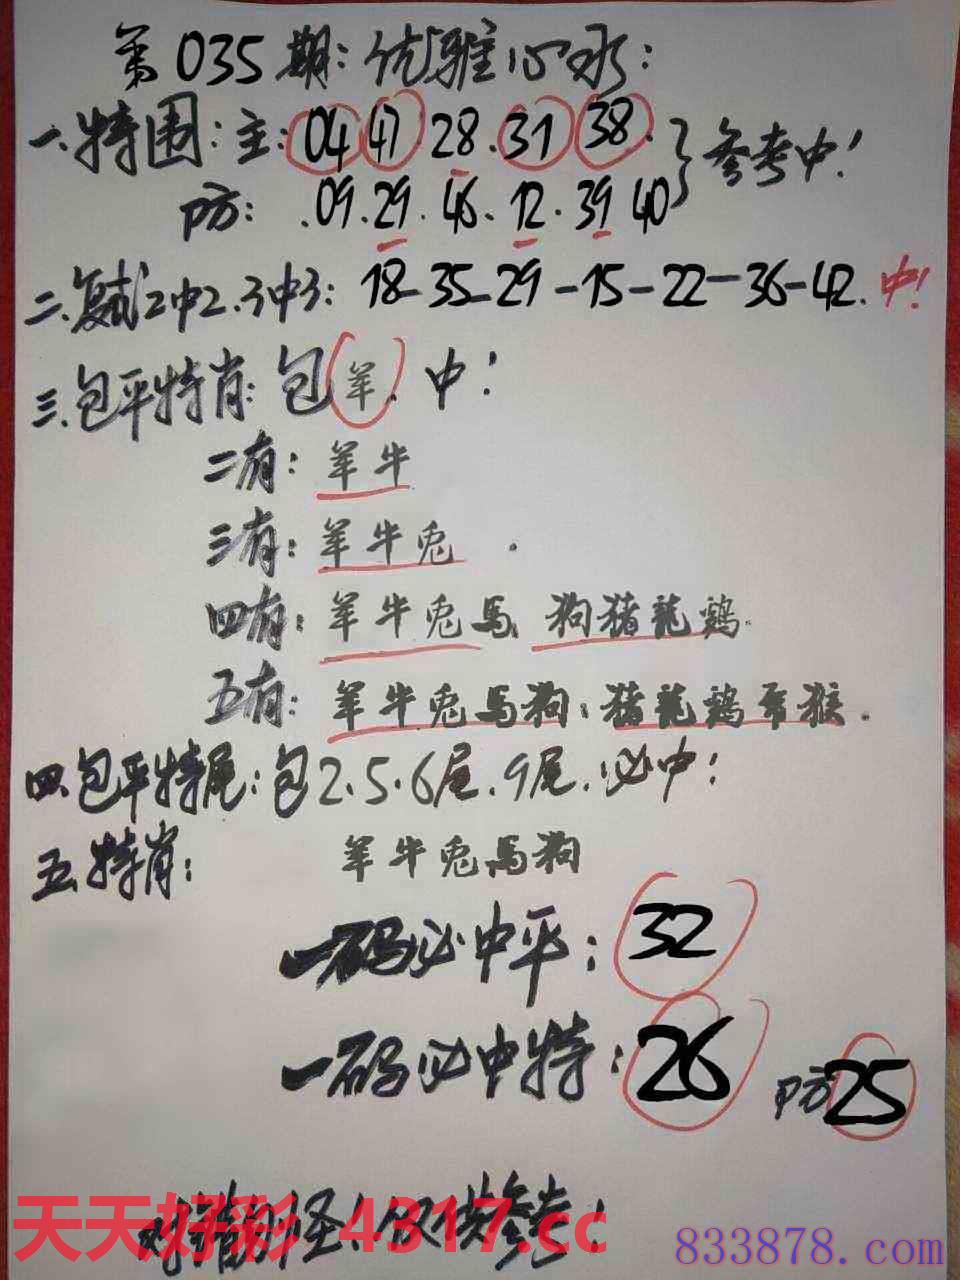 第035期:优雅心水:
一.特围:主:04 47 28.31 38.}参考中!
防:.09.29.46.12.39 40
二.复试2中2.3中3: 18-35-29-15-22-36-42.中!
三.包平特肖:包羊.中!
二有:羊牛
三有:羊牛兔.
四有:羊牛兔馬 狗猪龍鷄.
五有:羊牛兔馬狗:猪龍鷄虎猴.
四.包平特尾:包2.5.6尾.9尾.必中!
五.特肖: 羊牛兔馬狗
一码必中平:32
一码必中特:26 防25
对错勿怪!仅供参考!
天天好彩 4317.cc
833878.com